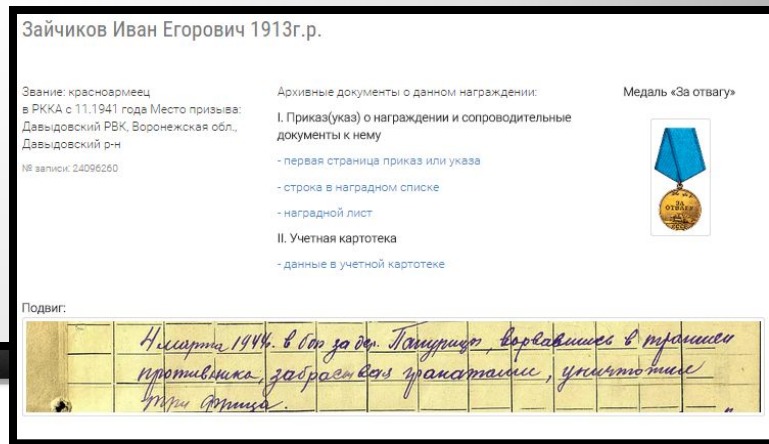 Зайчиков Иван Егорович 1913г.р.
Звание: красноармеец
в РККА с 11.1941 года Место призыва:
Давыдовский РВК, Воронежская обл.,
Давыдовский р-н
№ записи: 24096260
Архивные документы о данном награждении:
I. Приказ(указ) о награждении и сопроводительные
документы к нему
- первая страница приказ или указа
- строка в наградном списке
- наградной лист
II. Учетная картотека
- данные в учетной картотеке
Медаль «За отвагу»
ЗА
ОТВАГУ
СССР
Подвиг:
4 марта 1944г. в бою за дер. ворвавшись в траншеи
противника, забрасывая гранатами, уничтожил
три фрица.